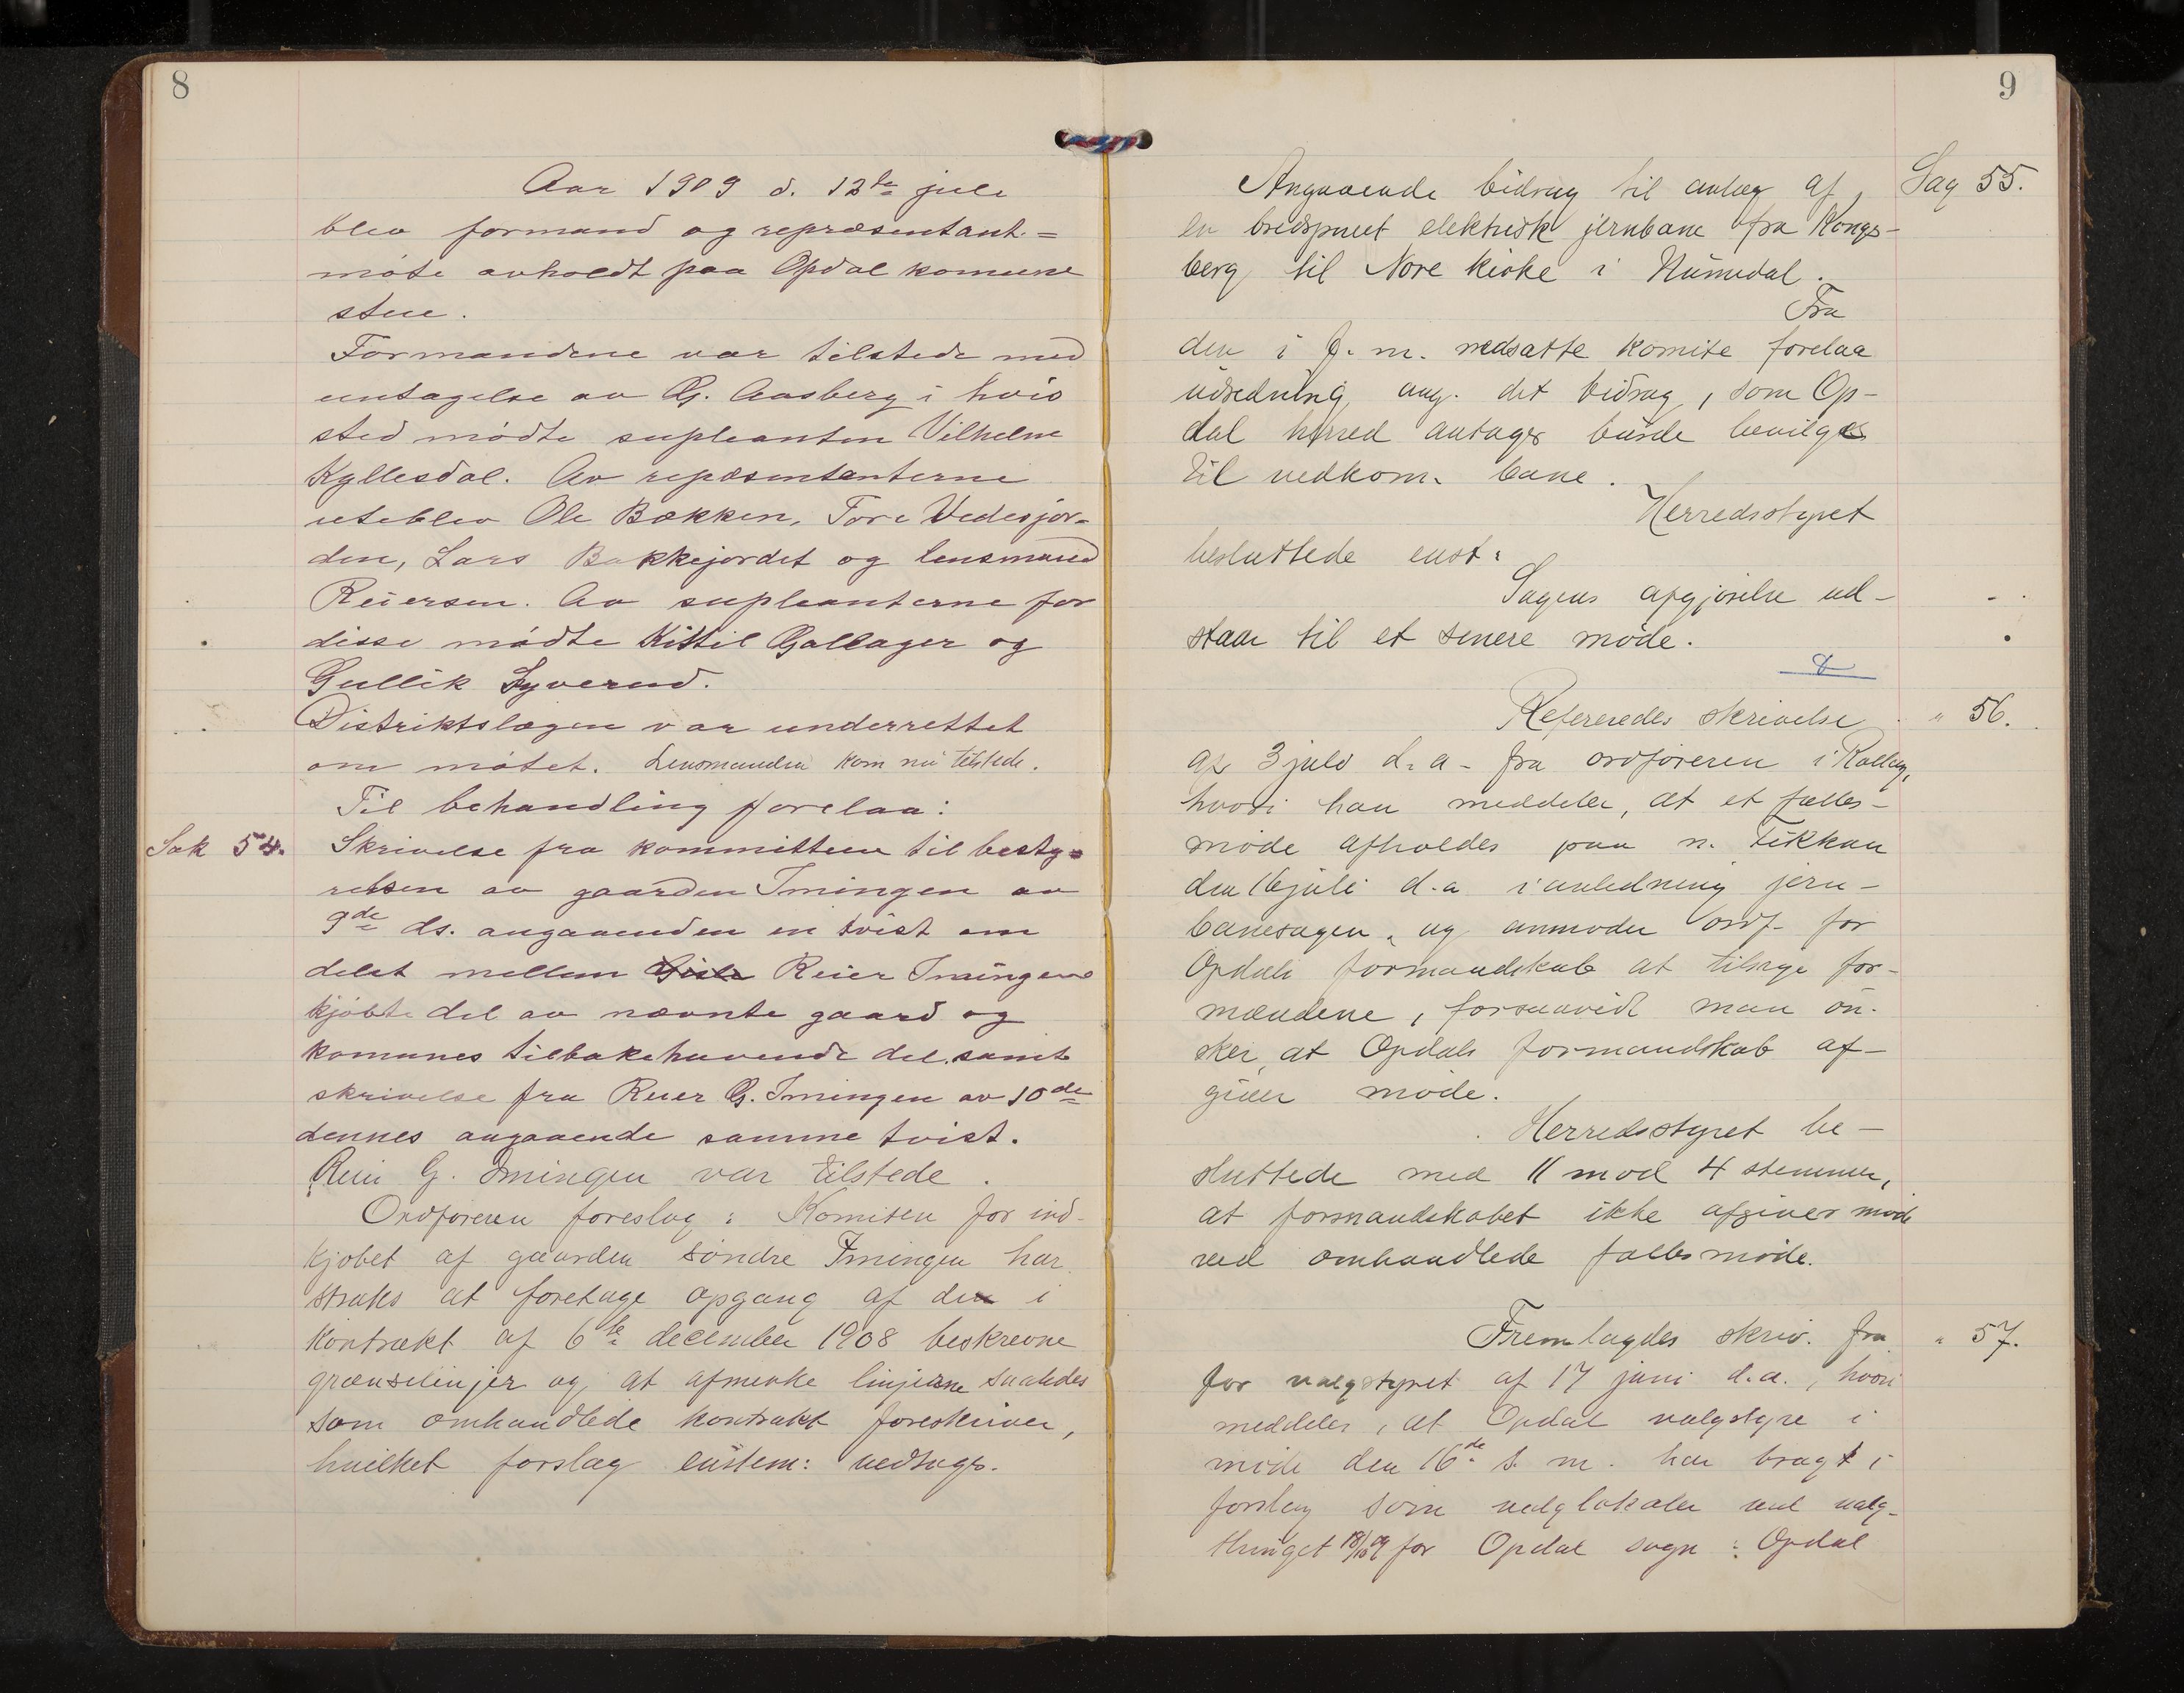 8
Aar 1909 d. 12te juli
blev formand og repræsentant=
møte avholdt paa Opdal komune
stue.
Formændene var tilstede med
untagelse av G. Aasberg i hvis
sted mødte supleanten Vilhelm
Kyllesdal. Av repæsentanterne
uteblev Ole Bækken, Tore Vedesjor-
den, Lars Bakkejordet og lensmand
Reiersen. Av supleanterne for
disse mødte Kittil Gallager og
Gullik Syverud.
Distriktslægen var underrettet
om møtet. Lensmanden kom nu tilstede.
Til behandling forelaa:
Sak 54. Skrivelse fra kommitteen til besty-
relsen av gaarden Imingen av
9de ds. angaaenden en tvist om
delet mellem Reier Imingens
kjøbte del av nævnte gaard og
komunes tilbakehavende del samt
skrivelse fra Reier G. Imingen av 10de
dennes angaaende samme tvist.
Reier G. Imingen var tilstede.
Ordføreren foreslog: Komiteen for ind-
kjøbet af gaarden søndre Imingen har
straks at foretage opgang af den i
kontrakt af 6te december 1908 beskrevne
grænselinjer og at afmerke linjerne saaledes
som omhandlede kontrakt foreskriver,
hvilket forslag enstem: vedtoges.
9
Sag 55.
Angaaende bidrag til anlæg af
en bredsporet elektrisk jernbane fra Kongs-
berg til Nore kirke i Numedal.
Fra
den i f. m. nedsatte komite forelaa
udredning ang. det bidrag, som Op-
dal herred antages burde bevilges
til vedkom. bane.
Herredsstyret
besluttede enst:
Sagens afgjørelse ud-
staar til et senere møde.
" 56.
Refereredes skrivelse
af 3 juli d. a. fra ordføreren i Rollag,
hvori han meddeler, at et fælles-
møde afholdes paa n. Fikkan
den 16 juli d.a. i anledning jern-
banesagen, og anmoder ordf. for
Opdals formandskab at tilsige for-
mændene, forsaavidt man øn-
sker, at Opdals formandskab af-
giver møde.
Herredsstyret be-
sluttede med 11 mod 4 stemmer,
at formandskabet ikke afgiver møde
ved omhandlede fællesmøde.
" 57.
Fremlagdes skriv. fra
for valgstyret af 17 juni d.a., hvori
meddeles, at Opdal valgstyre i
møde den 16de s. m. har bragt i
forslag som valglokaler ved valg-
thinget 18/10 09 for Opdal sogn: Opdal